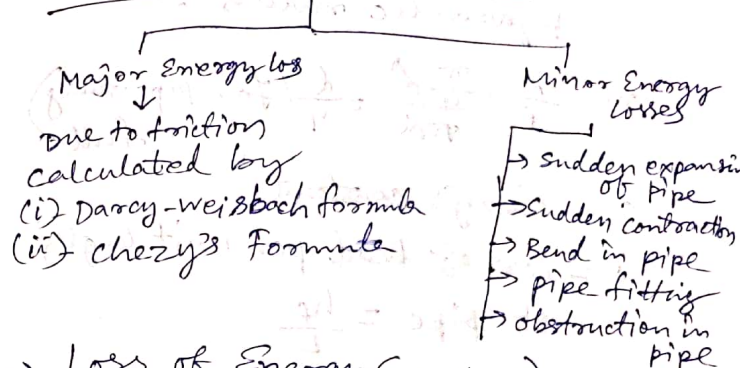 Major Energy loss
Due to friction
calculated by
(i) Darcy-weisbach formula
(ii) chezy's Formula
Minor Energy
losses
sudden expansi
of pipe
Sudden contraction
Bend in pipe
pipe fitting
obstruction in
pipe
Loss of Energy